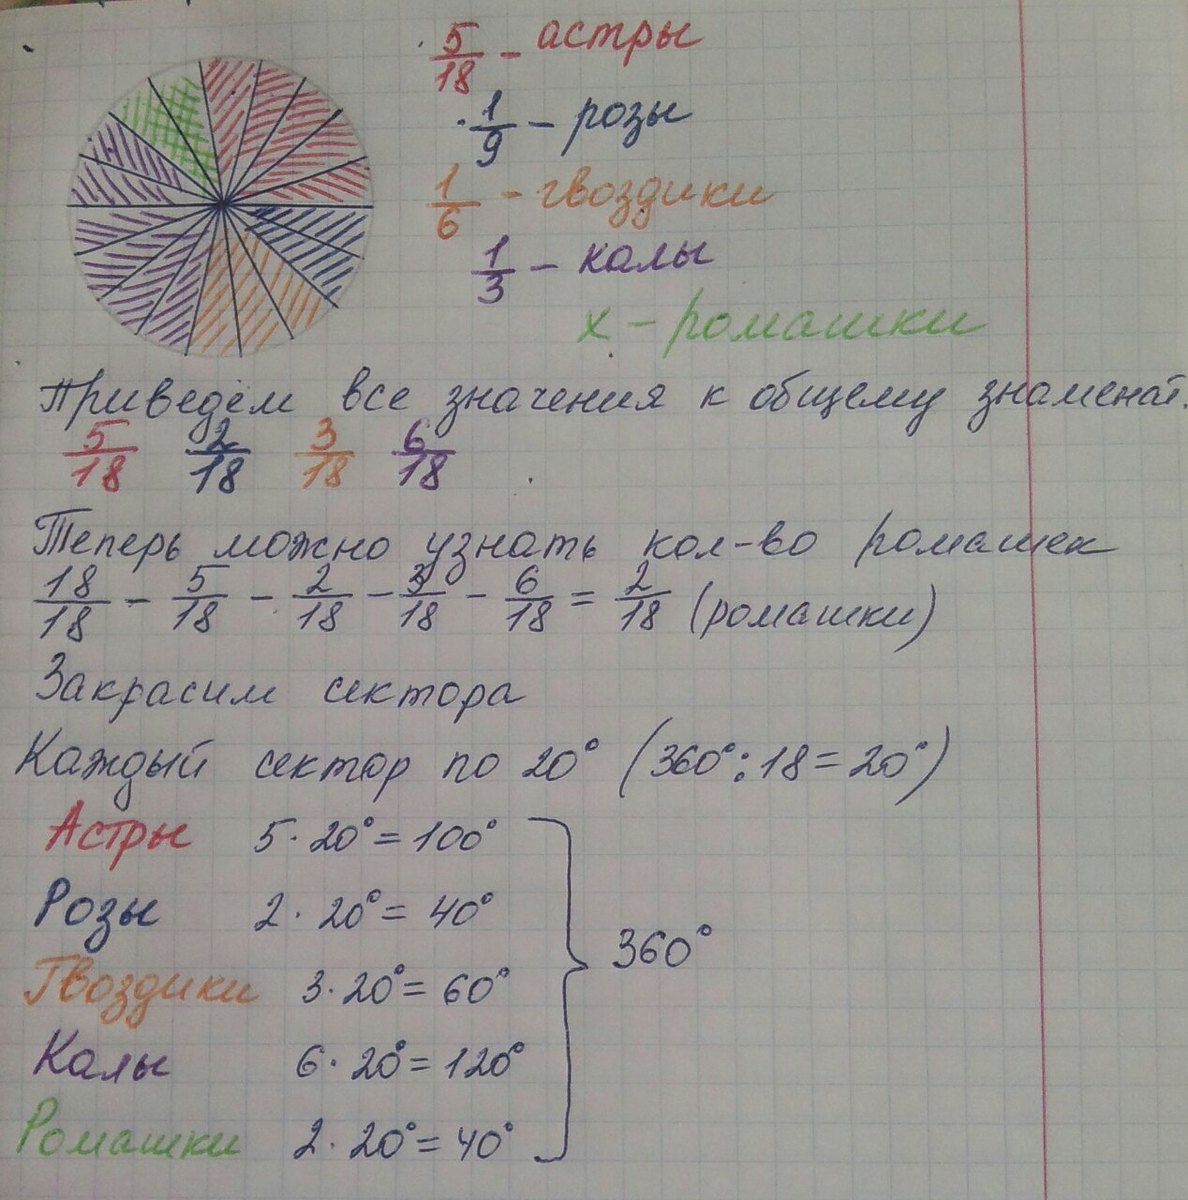 5/18 - астры
1/9 - розы
1/6 - гвоздики
1/3 - калы
x - ромашки
Приведём все значения к общему знаменат.
5/18 2/18 3/18 6/18
Теперь можно узнать кол-во ромашек
18/18 - 5/18 - 2/18 - 3/18 - 6/18 = 2/18 (ромашки)
Закрасим сектора
Каждый сектор по 20° (360°:18=20°)
Астры 5·20°=100°
Розы 2·20°=40°
Гвоздики 3·20°=60°
360°
Калы 6·20°=120°
Ромашки 2·20°=40°